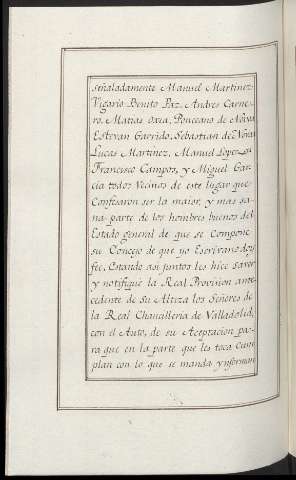 señaladamente Manuel Martinez:
Vigario Benito Paz, Andres Carne-
ro, Matias Oxea, Ponciano de Nóvoa
Estevan Garrido, Sebastian de Nóvoa
Lucas Martinez, Manuel Lopez
Francisco Campos, y Miguel Gar-
cia todos Vecinos de este lugar que
Confesaron ser la maior, y mas sa-
na parte de los hombres buenos del
Estado general de que se Compone
su Concejo de que yo Escrivano doy
fee, Estando asi juntos les hice saver
y notifiquè la Real Provision ante-
cedente de Su Alteza los Señores de
la Real Chancilleria de Valladolid,
con el Auto, de su Aceptacion pa-
ra que en la parte que les toca Cum
plan con lo que se manda y ynforman